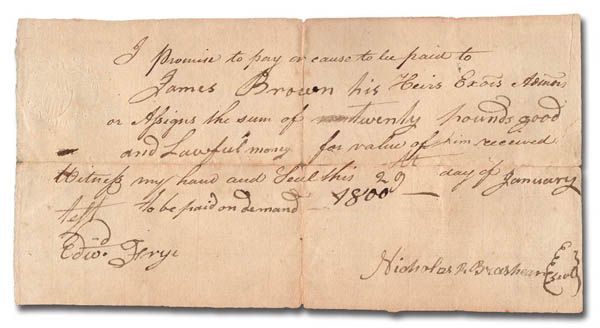 I Promise to pay or cause to be paid to
James Brown his Heirs Exors Admrs
or Assigns the sum of twenty pounds good
and Lawfull money for value of him received
Witness my hand and Seal this 29th day of January
test to be paid on demand — 1800
Edwd. Frye
Nicholas R. Brashear (Seal)